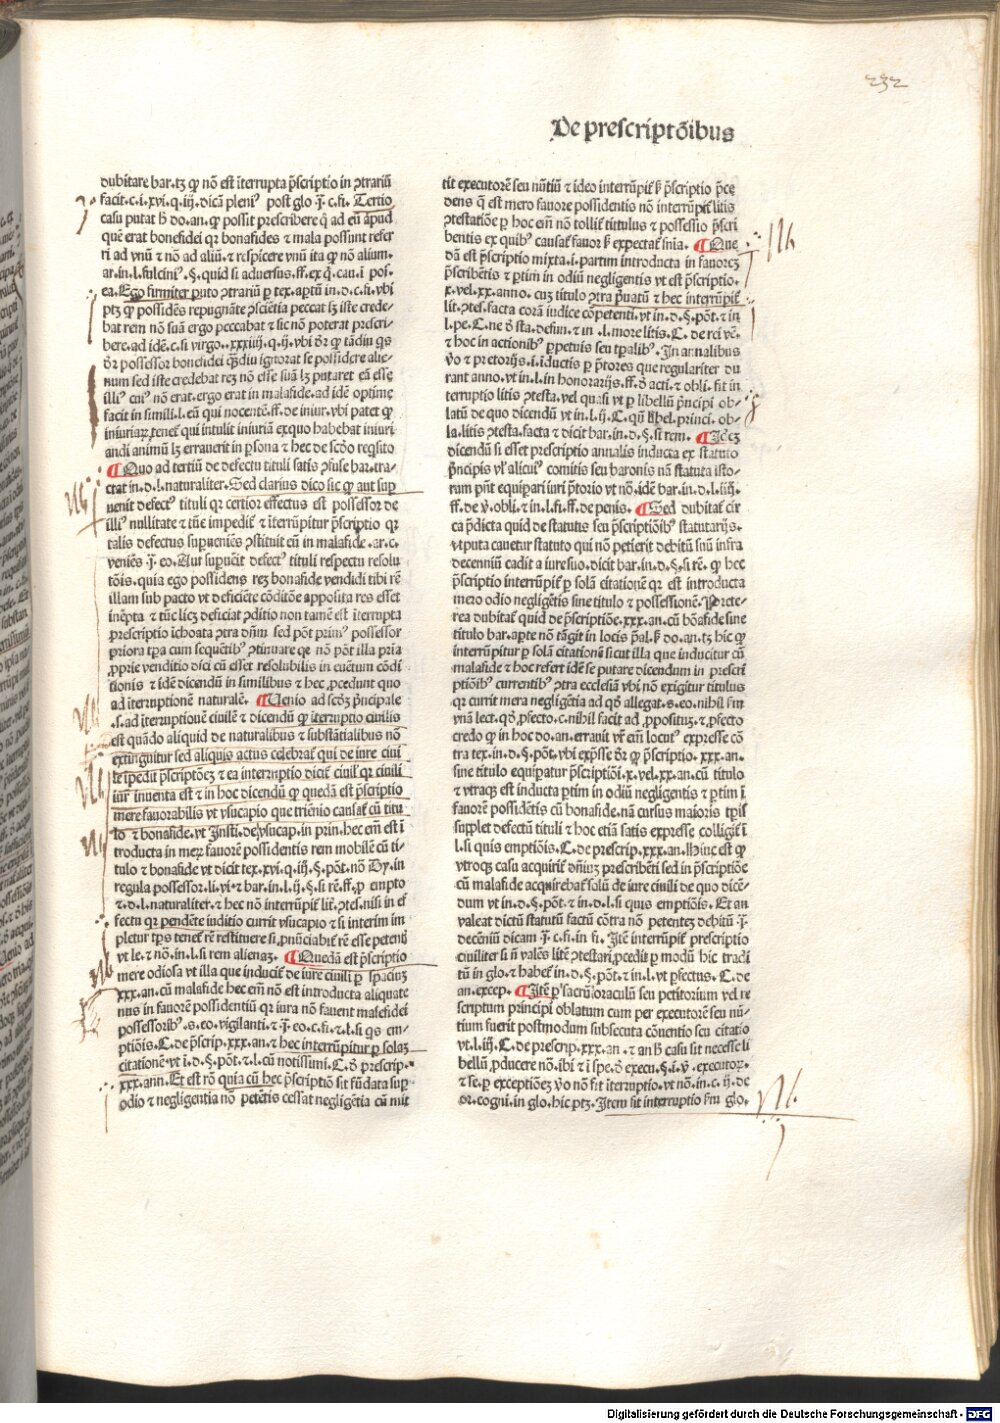 232
De prescriptōibus
dubitare bar. tʒ ꝙ nō est īterrupta p̄scriptio in ꝯtrariū
facit. c. i. xvi. q. iij. dicā pleniꝰ post glo ī. c. fi. Tertio
casu putat ḣ do. an. ꝙ possit prescribere q̄ ad eū apud
quē erat bonefidei qꝛ bonafides ⁊ mala possunt refer
ri ad vnū ⁊ nō ad aliū. ⁊ respicere vnū ita ꝙ nō alium.
ar. in. l. fulciniꝰ. §. quid si aduersus. ff. ex q̄. cau. i pos.
ea. Ego firmiter puto ꝯtrariū ꝑ tex. aꝑtū in. d. c. fi. vbi
ptꝫ ꝙ possidēs repugnāte ꝯsciētia peccat lꝫ iste crede-
bat rem nō suā ergo peccabat ⁊ sic nō poterat prescri-
bere. ad idē. c. si virgo. xxxiiij. q. ij. vbi d̄r ꝙ tādiu qs
d̄r possessor bonefidei q̄diu ignorat se possidere alie-
num sed iste credebat reʒ nō esse suā lꝫ putaret eā esse
illiꝰ cuiꝰ nō erat. ergo erat in malafide. ad idē optime
facit in simili. l. eū qui nocentē. ff. de iniur. vbi patet ꝙ
iniuriaꝝ tenet̄ qui intulit iniuriā exquo habebat iniuri
andi animū lꝫ errauerit in ꝑsona ⁊ hec de scd̄o reqsito
¶ Quo ad tertiū de defectu tituli satis ꝯfuse bar. tra-
ctat in. d. l. naturaliter. Sed clarius dico sic ꝙ aut suꝑ
uenit defectꝰ tituli qꝛ certior effectus est possessor de
illiꝰ nullitate ⁊ tūc impedit̄ ⁊ īterrūpitur p̄scriptio qꝛ
talis defectus suꝑueniēs ꝯstituit eū in malafide. ar. c.
veniēs. ī. eo. Aut suꝑuenit defectꝰ tituli respectu resolu
tōis. quia ego possidens reʒ bonafide vendidi tibi rē
illam sub pacto vt deficiēte cōditōe apposita res esset
inēpta ⁊ tūc licꝫ deficiat ꝯditio non tamē est īterrupta
prescriptio ichoata ꝯtra dn̄m sed pōt primꝰ possessor
priora tꝑa cum sequētibꝰ ꝯtinuare qꝛ nō pōt illa pria
ꝓprie venditio dici cū esset resolubilis in euētum cōdi
tionis ⁊ idē dicendū in similibus ⁊ hec ꝓcedunt quo
ad īterruptionē naturalē. ¶ Uenio ad scd̄ʒ p̄ncipale
.s. ad īterruptionē ciuilē ⁊ dicendū ꝙ iterruptio ciuilis
est quādo aliquid de naturalibus ⁊ substātialibus nō
extinguitur sed aliquis actus celebrat̄ qui de iure ciui
le īpedit p̄scriptōeʒ ⁊ ea interruptio dicit̄ ciuilꝭ qꝛ ciuili
iure inuenta est ⁊ in hoc dicendū ꝙ quedā est p̄scriptio
mere fauorabilis vt vsucapio que triēnio causat̄ cū titu
lo ⁊ bonafide. vt Insti. de vsucap. in prin. hec em̄ est ī
troducta in meꝝ fauorē possidentis rem mobilē cū ti-
tulo ⁊ bonafide vt dicit tex. xvi. q. iij. §. pōt. nō Dy. in
regula possessor. li. vi. ⁊ bar. in. l. ij. §. si rē. ff. ꝓ empto
⁊. d. l. naturaliter. ⁊ hec nō interrūpit̄ lit̄. ꝯtes. nisi in ef
fectu qꝛ pendēte iuditio currit vsucapio ⁊ si interim im
pletur tp̄s tenet̄ rē restituere si. ꝓnūciabit̄ rē esse petentꝭ
vt le. ⁊ nō. in. l. si rem alienaʒ. ¶ Quedā est p̄scriptio
mere odiosa vt illa que inducit̄ de iure ciuili ꝑ spaciuʒ
xxx. an. cū malafide hec em̄ nō est introducta aliquate
nus in fauorē possidentiū qꝛ iura nō fauent malefidei
possessoribꝰ. s. eo. vigilanti. ⁊ ī. eo. c. fi. ⁊. l. si qs em-
ptiōis. C. de p̄scrip. xxx. an. ⁊ hec interrūpitur ꝑ solaʒ
citationē vt i. d. §. pōt. ⁊. l. cū notissimi. C. d̄ prescrip.
xxx. ann. Et est rō quia cū hec p̄scriptiō sit fūdata suꝑ
odio ⁊ negligentia nō petētis cessat negligētia cū mit
tit executorē seu nūtiū ⁊ ideo interrūpit̄ ḣ p̄scriptio p̄ce
dens q̄ est mero fauore possidentis nō interrūpit̄ litis
ꝯtestatiōe ꝑ hoc em̄ nō tollit̄ titulus ⁊ possessio p̄scri
bentis ex quibꝰ causat̄ fauor ḣ expectat̄ sn̄ia. ¶ Que
dā est p̄scriptio mixta. i. partim introducta in fauoreʒ
p̄scribētis ⁊ ꝑtim in odiū negligentis vt est p̄scriptio.
x. vel. xx. anno. cuʒ titulo ꝯtra p̄uatū ⁊ hec interrūpit̄
lit. ꝯtes. facta corā iudice cōpetenti. vt in. d. §. pōt. ⁊ in
l. pe. C. ne d̄ sta. defun. ⁊ in. l. more litis. C. de rei vē.
⁊ hoc in actionibꝰ ꝑpetuis seu tꝑalibꝰ. In annalibus
v̄o ⁊ pretorijs. i. iductis ꝑ p̄torea que regulariter du
rant anno. vt in. l. in honorarijs. ff. d̄ acti. ⁊ obli. fit in
terruptio litis ꝯtesta. vel quasi vt ꝑ libellū p̄ncipi ob-
latū de quo dicendū vt in. l. ij. C. qn̄ libel. princi. ob-
la. litis ꝯtesta. facta ⁊ dicit bar. in. d. §. si rem. ¶ Ideʒ
dicendū si esset prescriptio annalis inducta ex statuto
p̄ncipis vl̄ alicuiꝰ comitis seu baronis nā statuta isto-
rum pn̄t equipari iuri p̄torio vt nō. idē bar. in. d. l. iiij.
ff. de v̄. obli. ⁊ in. l. fi. ff. de penis. ¶ Sed dubitat̄ cir
ca p̄dicta quid de statutis seu p̄scriptiōibꝰ statutarijs.
vtputa cauetur statuto qui nō petierit debitū suū infra
decenniū cadit a iure suo. dicit bar. in. d. §. si rē. ꝙ hec
p̄scriptio interrūpit̄ ꝑ solā citationē qꝛ est introducta
mero odio negligētis sine titulo ⁊ possessionē. Prete-
rea dubitat̄ quid de p̄scriptiōe. xxx. an. cū bōafide sine
titulo bar. aꝑte nō tāgit in locis p̄al. ḣ do. an. tꝫ hic ꝙ
interrūpitur ꝑ solā citationē sicut illa que inducitur cū
malafide ⁊ hoc refert idē se putare dicendum in prescri
ptiōibꝰ currentibꝰ ꝯtra ecclesiā vbi nō exigitur titulus
qꝛ currit mera negligētia ad qd̄ allegat. s. eo. nihil sm̄
vnā lect. qd̄. ꝓfecto. c. nihil facit ad. ꝓposituʒ. ⁊ ꝓfecto
credo ꝙ in hoc do. an. errauit vt̄ em̄ locutꝰ expresse cō
tra tex. in. d. §. pōt. vbi exp̄sse d̄r ꝙ p̄scriptio. xxx. an.
sine titulo equiparatur p̄scriptiōi. x. vel. xx. an. cū titulo
⁊ vtraqʒ est inducta ꝑtim in odiū negligentis ⁊ ꝑtim ī
fauorē possidētis cū bonafide. nā cursus maioris tꝑis
supplet defectū tituli ⁊ hoc etiā satis expresse colligit̄ ī
l. si quis emptiōis. C. de prescrip. xxx. an. Hinc est ꝙ
vtroqʒ casu acquirit̄ dn̄iuʒ prescribēti sed in p̄scriptiōe
cū malafide acquirebat̄ solū de iure ciuili de quo dicē-
dum vt in. d. §. pōt. ⁊ in. d. l. si quis emptiōis. Et an
valeat dictū statutū factū cōtra nō petenteʒ debitū. ī.
decēniū dicam. ī. c. fi. in fi. Itē interrūpit̄ prescriptio
ciuiliter si n̄ valēs lit̄ē ꝯtestari. ꝓcedit ꝑ modū hic tradi
tū in glo. ⁊ habet̄ in. d. §. pōt. ⁊ in. l. vt ꝑfectus. C. de
an. excep. ¶ Itē ꝑ sacrū oraculū seu petitorium vel re
scriptum principi oblatum cum per executorē seu nū-
tium fuerit postmodum subsecuta cōuentio seu citatio
vt. l. iij. C. de prescrip. xxx. an. ⁊ an ḣ casu sit necesse li
bellū ꝓducere nō. ibi ⁊ i spe. d̄ execu. §. i. v̄. executor.
⁊ se. ꝑ exceptiōeʒ v̄o nō fit iterruptio. vt nō. in. c. ij. de
or. cogni. in glo. hic ptꝫ. Item fit interruptio sm̄ glo.
Digitalisierung gefördert durch die Deutsche Forschungsgemeinschaft - DFG